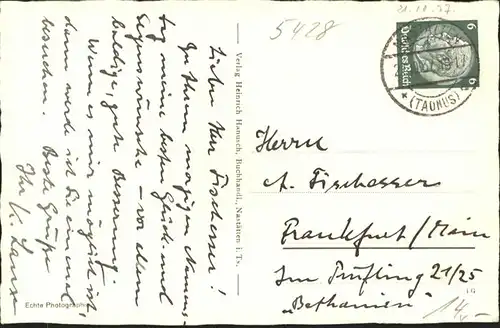 21.12.37.
5428
Deutsches Reich
6
6
(TAUNUS)
Lieber Herr Fischesser!
Zu Ihrem morgigen Namens-
tag meine besten Glück- und
Segenswünsche – vor allem
baldige, gute Besserung.
Wenn es mir möglich ist,
dann werde ich Sie einmal
besuchen. Beste Grüße
Ihr
Echte Photographie
Verlag Heinrich Hanusch, Buchhandl., Nastätten i. Ts.
Herrn
A. Fischesser
Frankfurt/Main
Im Prüfling 21/25
"Bethanien"
14,-